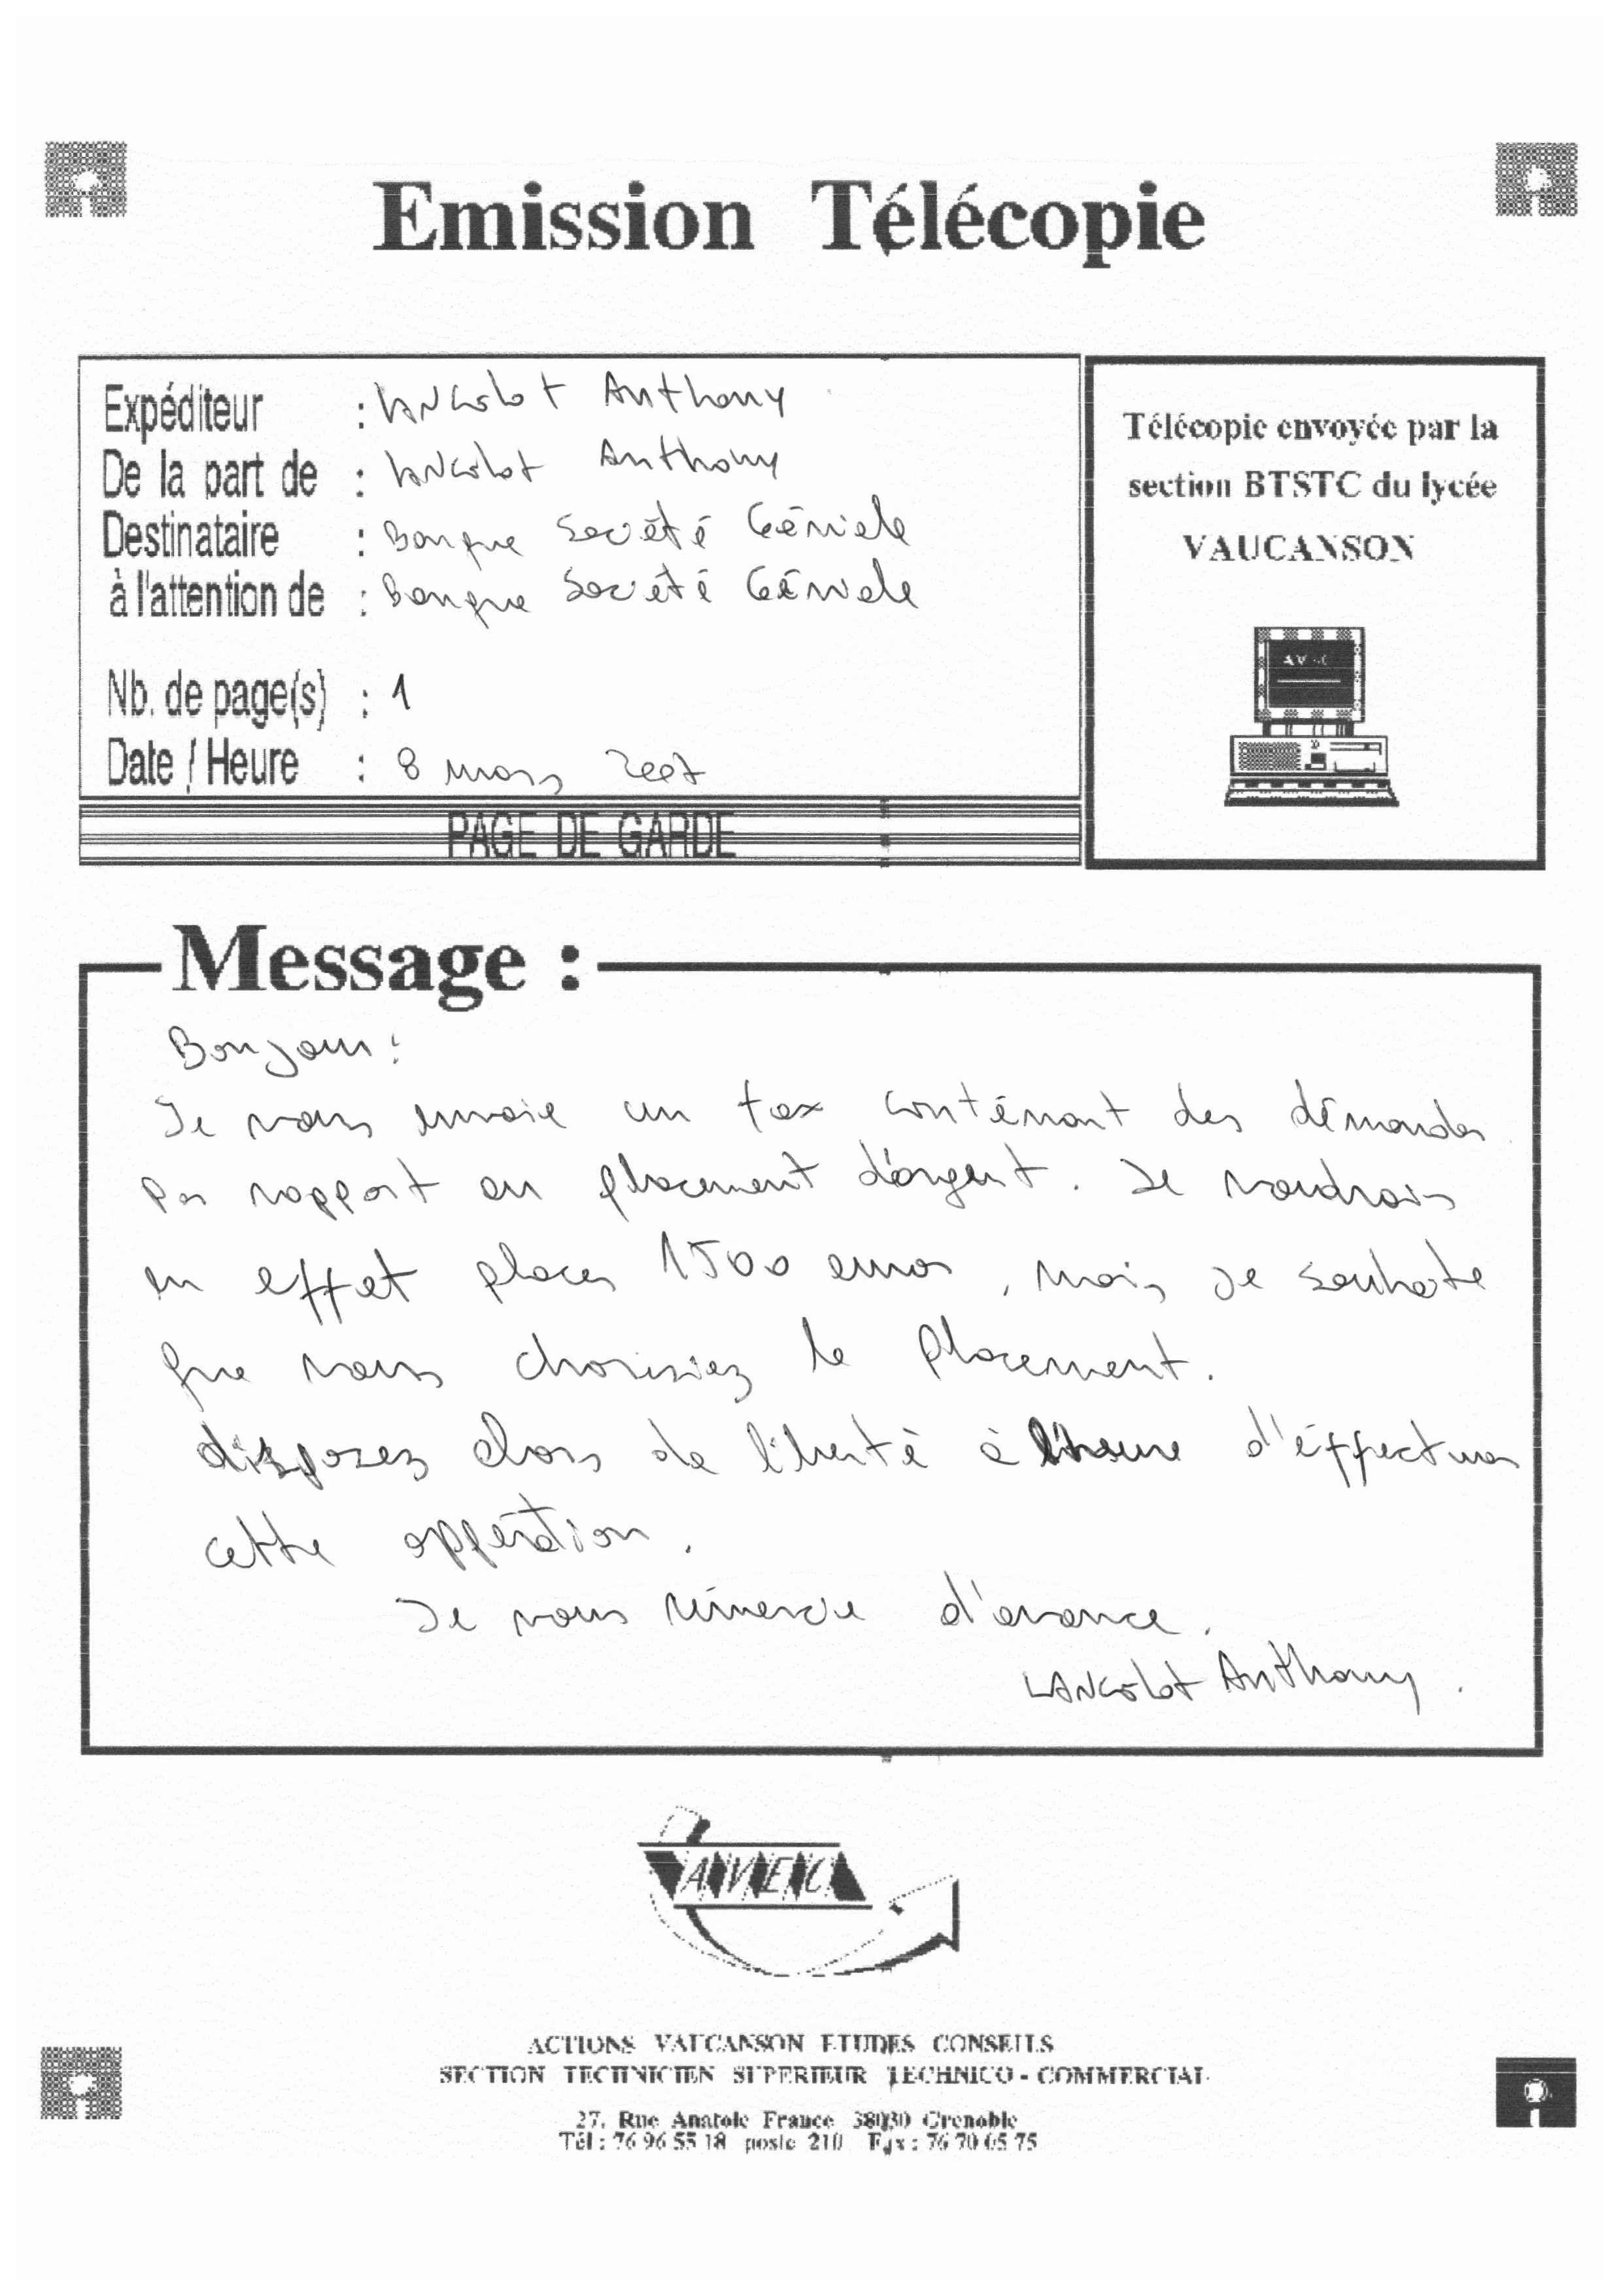 Emission Télécopie
Expéditeur : LANCelot Anthony
De la part de : LANCelot Anthony
Destinataire : Banque Société Géniale
à l'attention de : Banque Société Géniale
Nb. de page(s) : 1
Date / Heure : 8 mars 2007
PAGE DE GARDE
Télécopie envoyée par la
section BTSTC du lycée
VAUCANSON
Message :
Bonjour :
Je vous envoie un fax conténant des démandes
par rapport au placement d'argent. Je voudrais
en effet placer 1500 euros, mais je souhate
que vous choisisiez le placement.
disposez alors de liberté à l'heure d'éffectuer
cette oppération.
Je vous rémercie d'avance.
LANCelot Anthony.
AVEC
ACTIONS VAUCANSON ETUDES CONSEILS
SECTION TECHNICIEN SUPERIEUR TECHNICO - COMMERCIAL
27, Rue Anatole France 38030 Grenoble
Tél : 76 96 55 18 poste 210 Fax : 76 70 05 75